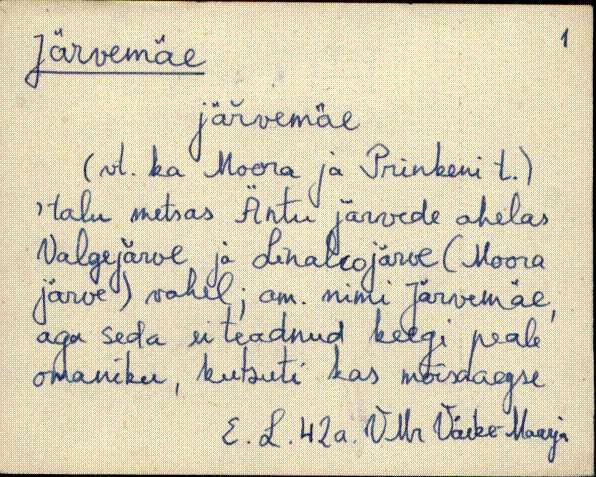 Järvemäe
1
järvemäe
(vt. ka Moora ja Prinkeni t.)
talu metsas Äntu järvede ahelas
Valgejärve ja Linaleojärve (Moora
järve) vahel; am. nimi Järvemäe,
aga seda ei teadnud keegi peale
omaniku, kutsuti kas mõisaaegse
E. L. 42a. VMr Väike-Maarja